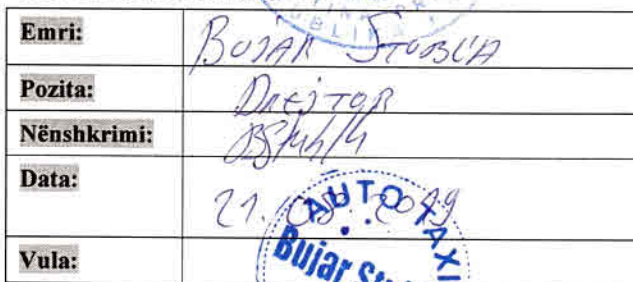 Emri: BUJAR STUBLLA
Pozita: DREJTOR
Nënshkrimi:
Data: 21. 08. 2019
AUTO TAXI
Bujar
Vula: